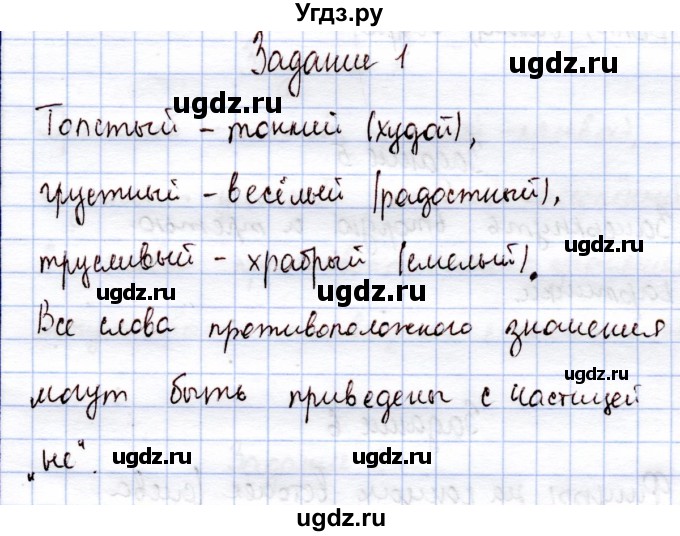 Угдз.ру
Задание 1
ugdz.ru
ugdz.ru
Толстый – тонкий (худой),
ugdz.ru
грустный – весёлый (радостный),
трусливый – храбрый (смелый).
ugdz.ru
ugdz.ru
ugdz.ru
Все слова противоположного значения
могут быть приведены с частицей
ugdz.ru
"не".
ugdz.ru
ugdz.ru
ugdz.ru